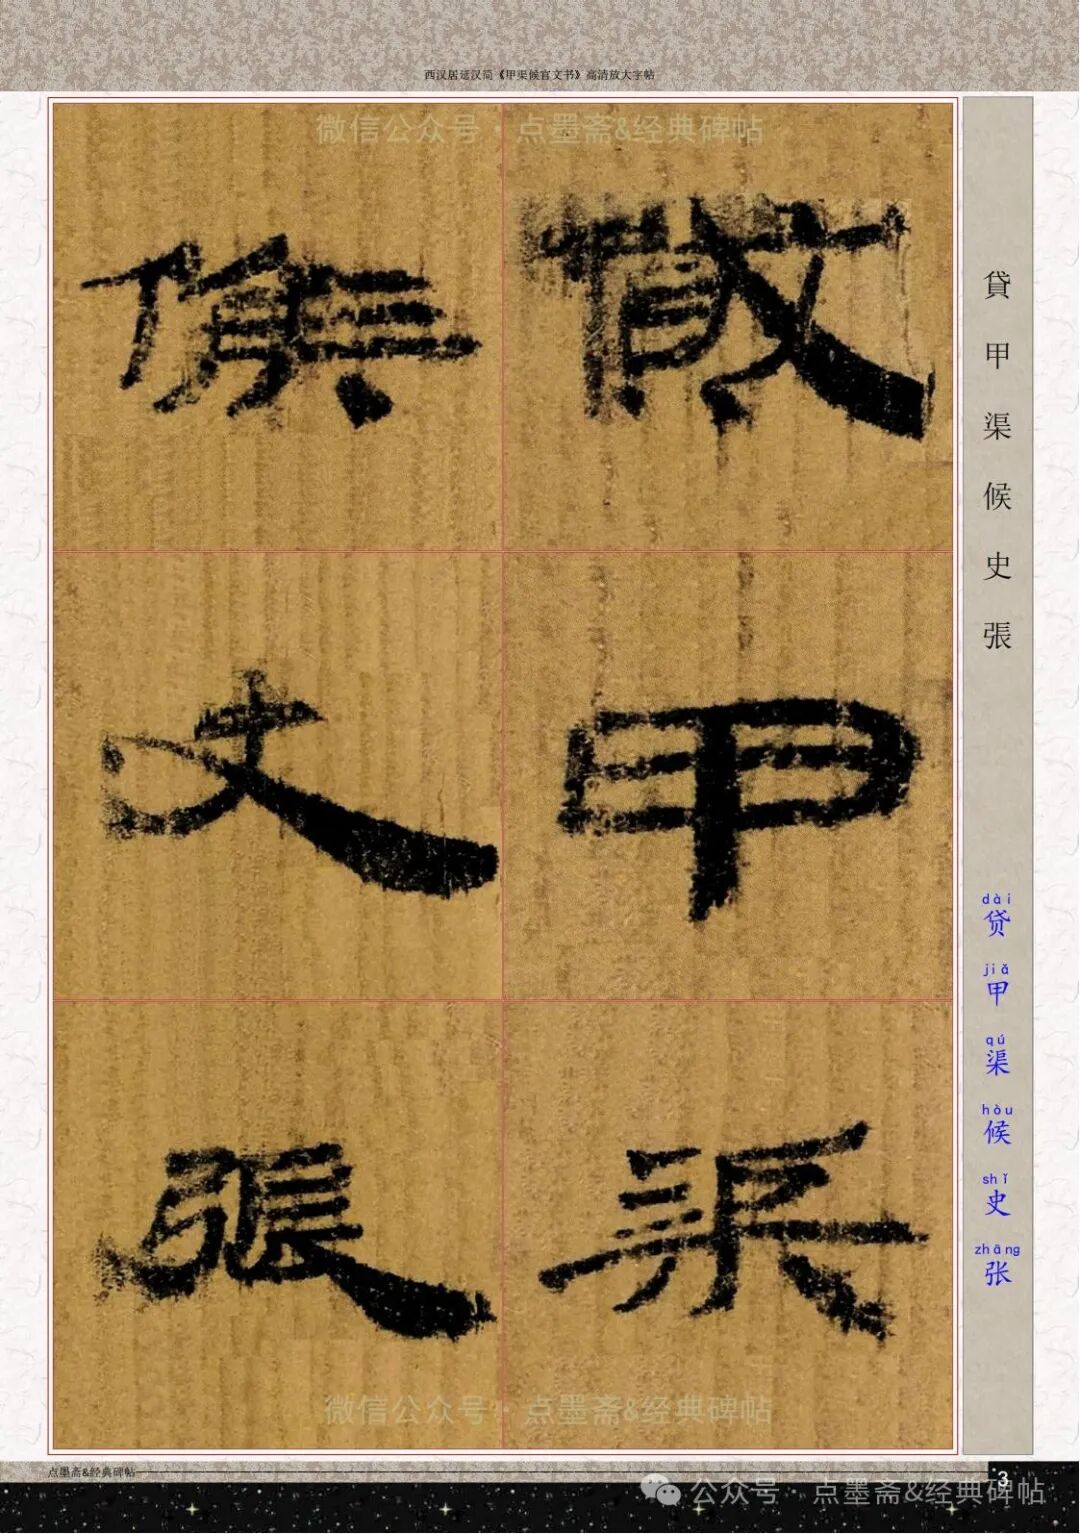 西汉居延汉简《甲渠候官文书》高清放大字帖
微信公众号·点墨斋&经典碑帖
貸甲渠候史張
貸甲渠候史張
dài jiǎ qú hòu shǐ zhāng
贷甲渠候史张
微信公众号·点墨斋&经典碑帖
点墨斋&经典碑帖
3
公众号·点墨斋&经典碑帖